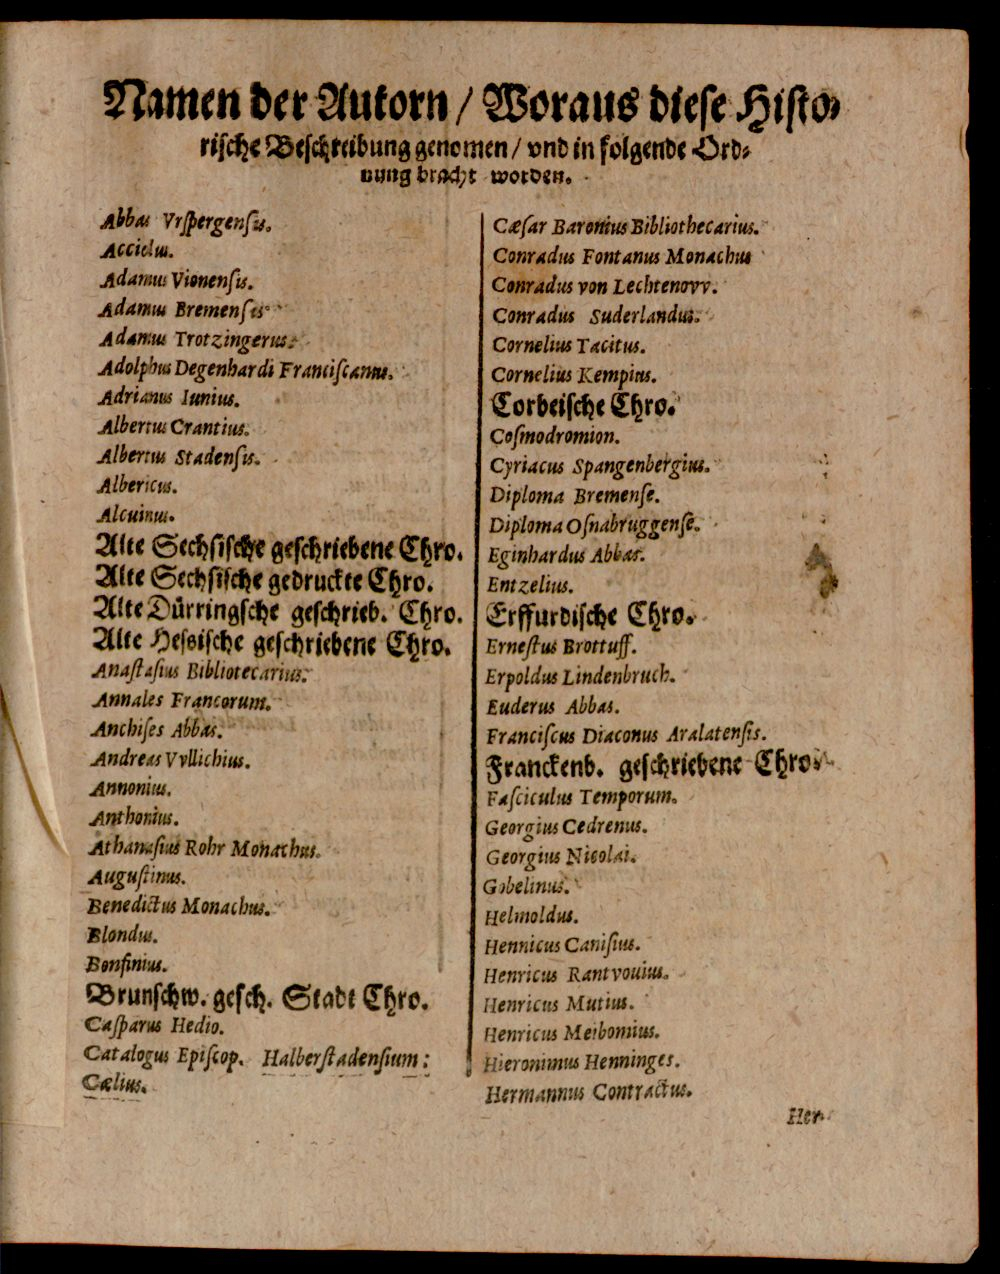 Namen der Autorn / Woraus diese Histo⸗
rische Beschreibung genomen / vnd in folgende Ord⸗
nung bracht worden.
Abbas Vrſpergenſis.
Acciolus.
Adamus Vionenſis.
Adamus Bremenſis
Adamus Trotzingerus.
Adolphus Degenhardi Franciſcanus.
Adrianus Iunius.
Albertus Crantius.
Albertus Stadenſis.
Albericus.
Alcuinus.
Alte Sechſiſche geſchriebene Chro.
Alte Sechſiſche gedruckte Chro.
Alte Dürringſche geſchrieb. Chro.
Alte Hesſiſche geſchriebene Chro.
Anaſtaſius Bibliotecarius.
Annales Francorum.
Anchiſes Abbas.
Andreas Vvllichius.
Annonius.
Anthonius.
Athanaſius Rohr Monachus.
Auguſtinus.
Benedictus Monachus.
Blondus.
Bonfinius.
Brunſchw. geſch. Stadt Chro.
Caſparus Hedio.
Catalogus Epiſcop. Halberſtadenſium:
Cælius.
Cæſar Baronius Bibliothecarius.
Conradus Fontanus Monachus
Conradus von Lechtenovv.
Conradus Suderlandus.
Cornelius Tacitus.
Cornelius Kempius.
Corbeiſche Chro.
Coſmodromion.
Cyriacus Spangenbergius.
Diploma Bremenſe.
Diploma Oſnabruggenſe.
Eginhardus Abbas.
Entzelius.
Erffurdiſche Chro.
Erneſtus Brottuff.
Erpoldus Lindenbruch.
Euderus Abbas.
Franciſcus Diaconus Aralatenſis.
Franckenb. geſchriebene Chro.
Faſciculus Temporum.
Georgius Cedrenus.
Georgius Nicolai.
Gobelinus.
Helmoldus.
Hennicus Caniſius.
Henricus Rantvouius.
Henricus Mutius.
Henricus Meibomius.
Hieronimus Henninges.
Hermannus Contractus.
Her-